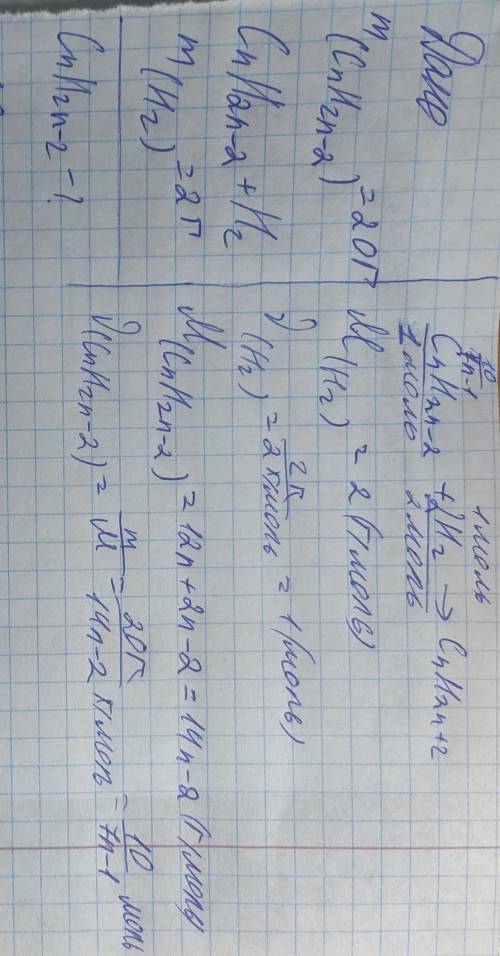 Дано
m(CnH2n-2) = 20г
CnH2n-2 + H2
m(H2) = 2г
CnH2n-2 - ?
10/7n-1 1 моль
CnH2n-2 + 2H2 → CnH2n+2
1 моль 2 моль
M(H2) = 2 (г/моль)
ν(H2) = 2г / 2 г/моль = 1 (моль)
M(CnH2n-2) = 12n + 2n - 2 = 14n - 2 (г/моль)
ν(CnH2n-2) = m/M = 20г / 14n-2 г/моль = 10/7n-1 моль